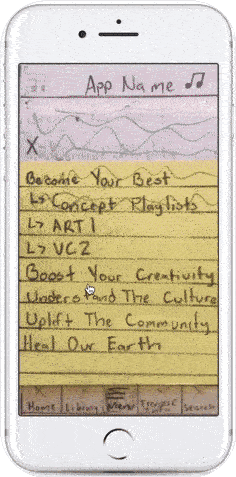 App Name
X
Become Your Best
↳ Concept Playlists
↳ ART 1
↳ VC2
Boost Your Creativity
Understand The Culture
Uplift The Community
Heal Our Earth
Home Library Menu Search